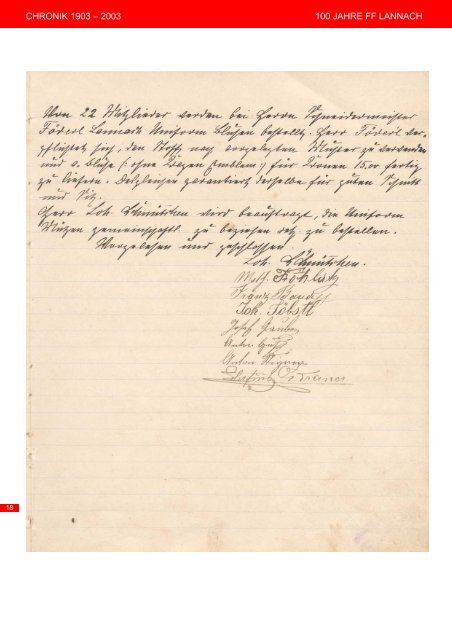 CHRONIK 1903 – 2003
100 JAHRE FF LANNACH
Von 22 Mitglieder werden bei Herrn Schneidermeister
Föderl Lannach Uniform Blusen bestellt, Herr Föderl ver-
pflichtet sich, den Stoff nach vorgelegten Muster zu verwenden
und a. Bluse (: ohne Kragen Emblem :) für Kronen 15.00 fertig
zu liefern. Desgleichen garantiert derselbe für guten Schnitt
und Sitz.
Herr Joh. wird beauftragt, die Uniform
Mützen gemeinschaftl. zu beziehen zu bestellen.
Vorgelesen und geschlossen.
Joh.
Math.
Franz
Joh. Töbstl
Josef Gruber
Anton
18